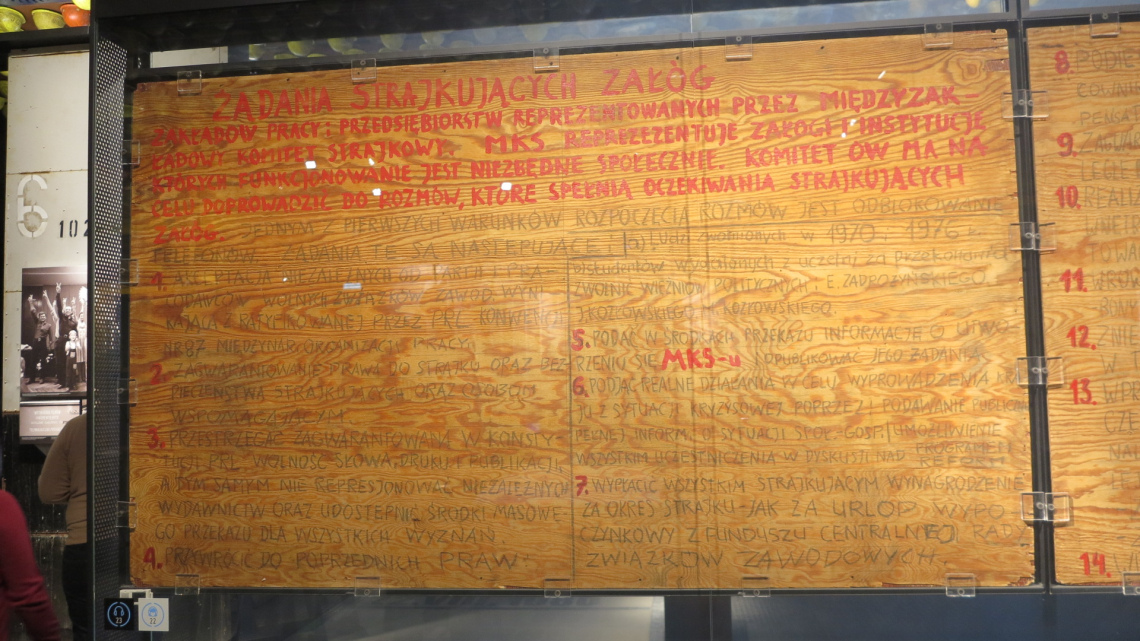 ŻĄDANIA STRAJKUJĄCYCH ZAŁÓG
ZAKŁADÓW PRACY i PRZEDSIĘBIORSTW REPREZENTOWANYCH PRZEZ MIĘDZYZAK-
ŁADOWY KOMITET STRAJKOWY. MKS REPREZEZENTUJE ZAŁOGI i INSTYTUCJE
KTÓRYCH FUNKCJONOWANIE JEST NIEZBĘDNE SPOŁECZNIE. KOMITET ÓW MA NA
CELU DOPROWADZIĆ DO ROZMÓW, KTÓRE SPEŁNIĄ OCZEKIWANIA STRAJKUJĄCYCH
ZAŁÓG. JEDNYM Z PIERWSZYCH WARUNKÓW ROZPOCZĘCIA ROZMÓW JEST ODBLOKOWANIE
TELEFONÓW.
SĄ NASTĘPUJĄCE:
1.
NIEZALEŻNYCH OD PARTII I PRA-
CODAWCÓW WOLNYCH ZWIĄZKÓW ZAWOD. WYNI-
KAJĄCA Z RATYFIKOWANEJ PRZEZ PRL KONWENCJI
NR 87 MIĘDZYNAR. ORGANIZACJI PRACY.
2. ZAGWARANTOWANIE PRAWA DO STRAJKU ORAZ BEZ-
PIECZEŃSTWA STRAJKUJĄCYCH ORAZ OSOBOM
WSPOMAGAJĄCYM
3. PRZESTRZEGAĆ ZAGWARANTOWANĄ W KONSTY-
TUCJI PRL WOLNOŚĆ SŁOWA, DRUKU I PUBLIKACJI,
A TYM SAMYM NIE REPRESJONOWAĆ NIEZALEŻNYCH
WYDAWNICTW ORAZ UDOSTĘPNIĆ ŚRODKI MASOWE-
GO PRZEKAZU DLA WSZYSTKICH WYZNAŃ.
4. PRZYWRÓCIĆ DO POPRZEDNICH PRAW:
a) Ludzi zwolnionych w 1970 i 1976
b) studentów wydalonych z uczelni za przekonania
ZWOLNIĆ WIĘŹNIÓW POLITYCZNYCH: E. ZADROŻYŃSKIEGO,
J. KOZŁOWSKIEGO i M. KOZŁOWSKIEGO.
5. PODAĆ W ŚRODKACH PRZEKAZU INFORMACJĘ O UTWO-
RZENIU SIĘ MKS-u I OPUBLIKOWAĆ JEGO ŻĄDANIA
6. PODJĄĆ REALNE DZIAŁANIA W CELU WYPROWADZENIA KRA-
JU Z SYTUACJI KRYZYSOWEJ POPRZEZ: PODAWANIE PUBLICZNIE
PEŁNEJ INFORM. O SYTUACJI SPOŁ.-GOSP. UMOŻLIWIENIE
WSZYSTKIM UCZESTNICZENIA W DYSKUSJI NAD PROGRAMEM REFORM
7. WYPŁACIĆ WSZYSTKIM STRAJKUJĄCYM WYNAGRODZENIE
ZA OKRES STRAJKU - JAK ZA URLOP WYPO-
CZYNKOWY Z FUNDUSZU CENTRALNEJ RADY
ZWIĄZKÓW ZAWODOWYCH.
8.
9.
10.
11.
12.
13.
14.
6
102
23
22